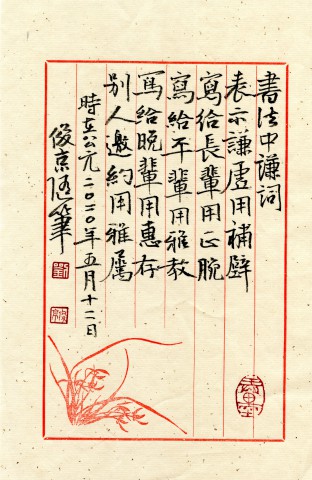 書法中謙詞
表示謙虚用補壁
寫給長輩用正腕
寫給平輩用雅教
冩給晚輩用惠存
别人邀約用雅屬
時在公元二〇二〇年五月十二日
俊京随筆
劉